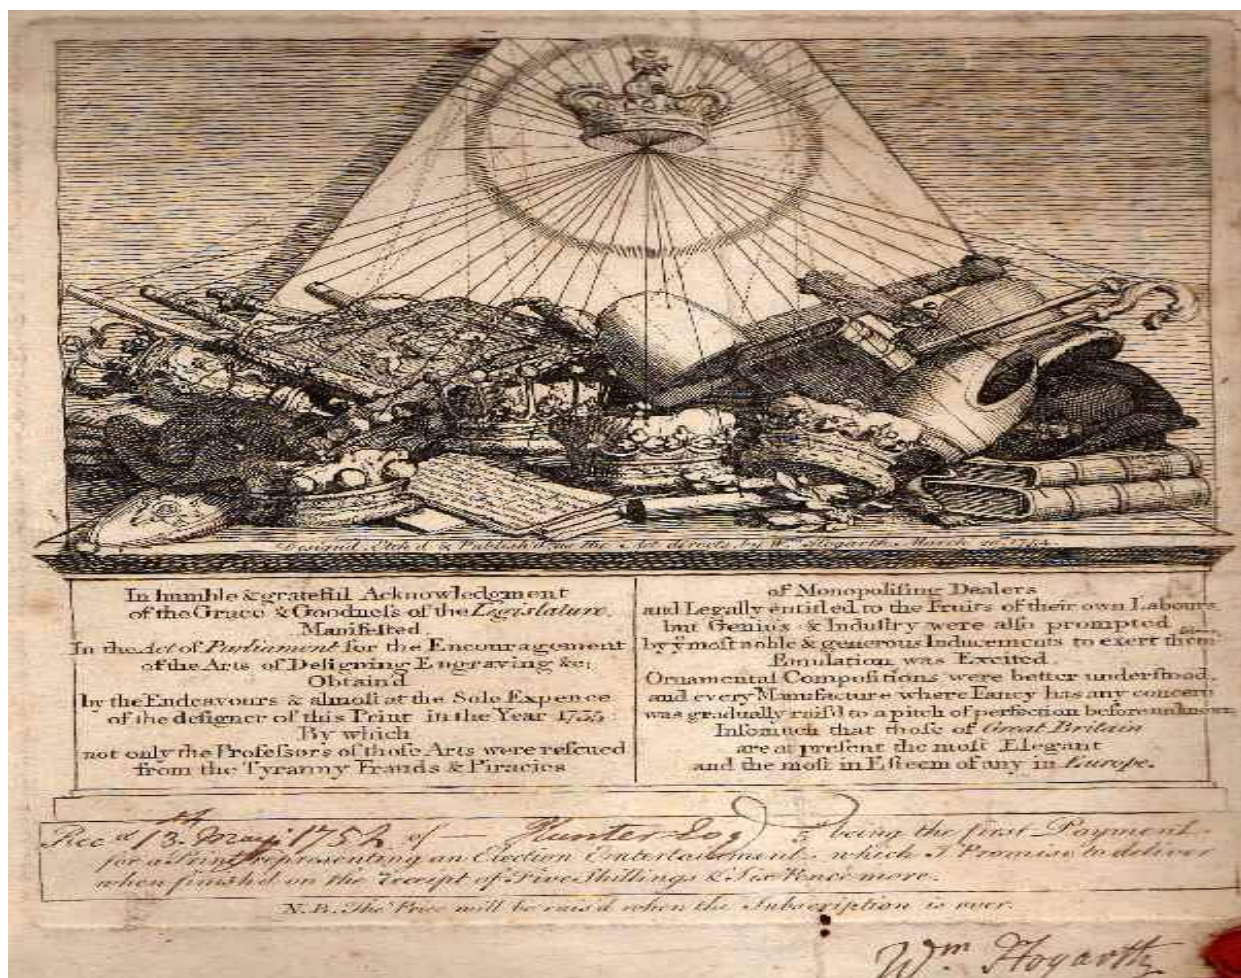 Design'd Etch'd & Publish'd as the Act directs by Wm. Hogarth March 1754.
In humble & grateful Acknowledgment
of the Grace & Goodneſs of the Legislature,
Manifeſted
In the Act of Parliament for the Encouragement
of the Arts of Deſigning Engraving &c;
Obtaind
by the Endeavours & almoſt at the Sole Expence
of the deſigner of this Print in the Year 1735
By which
not only the Profeſsors of thoſe Arts were reſcued
from the Tyranny Frauds & Piracies
of Monopoliſing Dealers
and Legally entitled to the Fruits of their own Labours
but Genius & Induſtry were alſo prompted
by yͤ moſt noble & generous Inducements to exert themſelves.
Emulation was Excited.
Ornamental Compoſitions were better underſtood.
and every Manufacture where Fancy has any concern
was gradually rais'd to a pitch of perfection before unknown,
Inſomuch that thoſe of Great Britain
are at preſent the moſt Elegant
and the moſt in Eſteem of any in Europe.
Rec'd 13. May 1752 of — Hunter Esq being the first Payment
for a Print representing an Election Entertainment which I Promise to deliver
when finish'd on the Receipt of Five Shillings & Six Pence more.
N.B. The Price will be rais'd when the Subscription is over.
Wm Hogarth